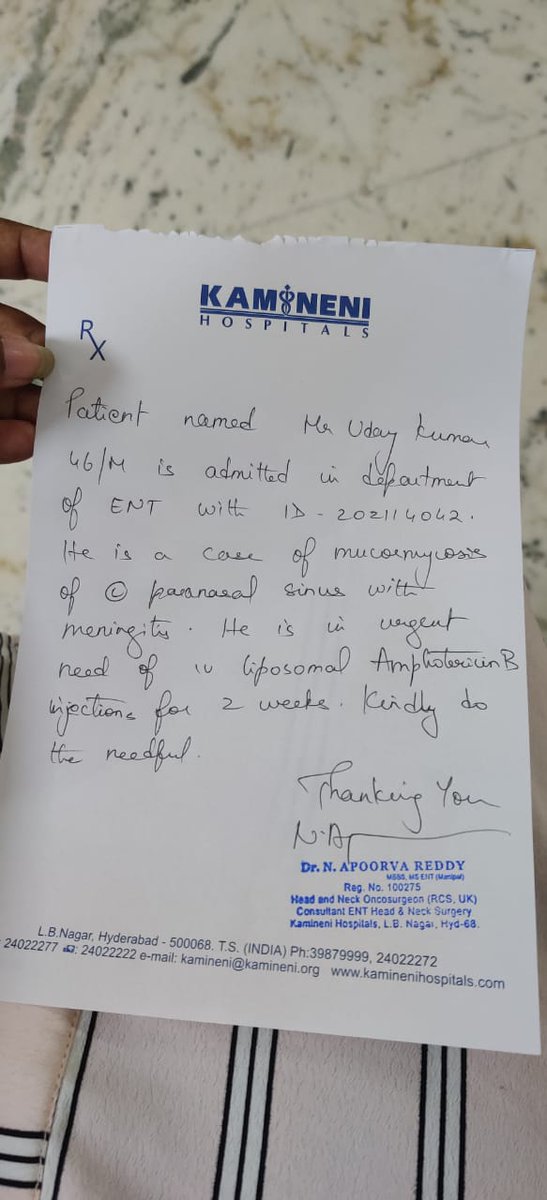 KAMINENI
HOSPITALS
Rx
Patient named Mr Uday Kumar
46/M is admitted in department
of ENT with ID - 202114042.
He is a case of mucormycosis
of Ⓛ paranasal sinus with
meningitis. He is in urgent
need of iv liposomal Amphotericin B
injections for 2 weeks. Kindly do
the needful.
Thanking You
N.A
Dr. N. APOORVA REDDY
MBBS, MS ENT (Manipal)
Reg. No. 100275
Head and Neck Oncosurgeon (RCS, UK)
Consultant ENT Head & Neck Surgery
Kamineni Hospitals, L.B. Nagar, Hyd-68.
L.B.Nagar, Hyderabad - 500068. T.S. (INDIA) Ph:39879999, 24022272
24022277 : 24022222 e-mail: kamineni@kamineni.org www.kaminenihospitals.com